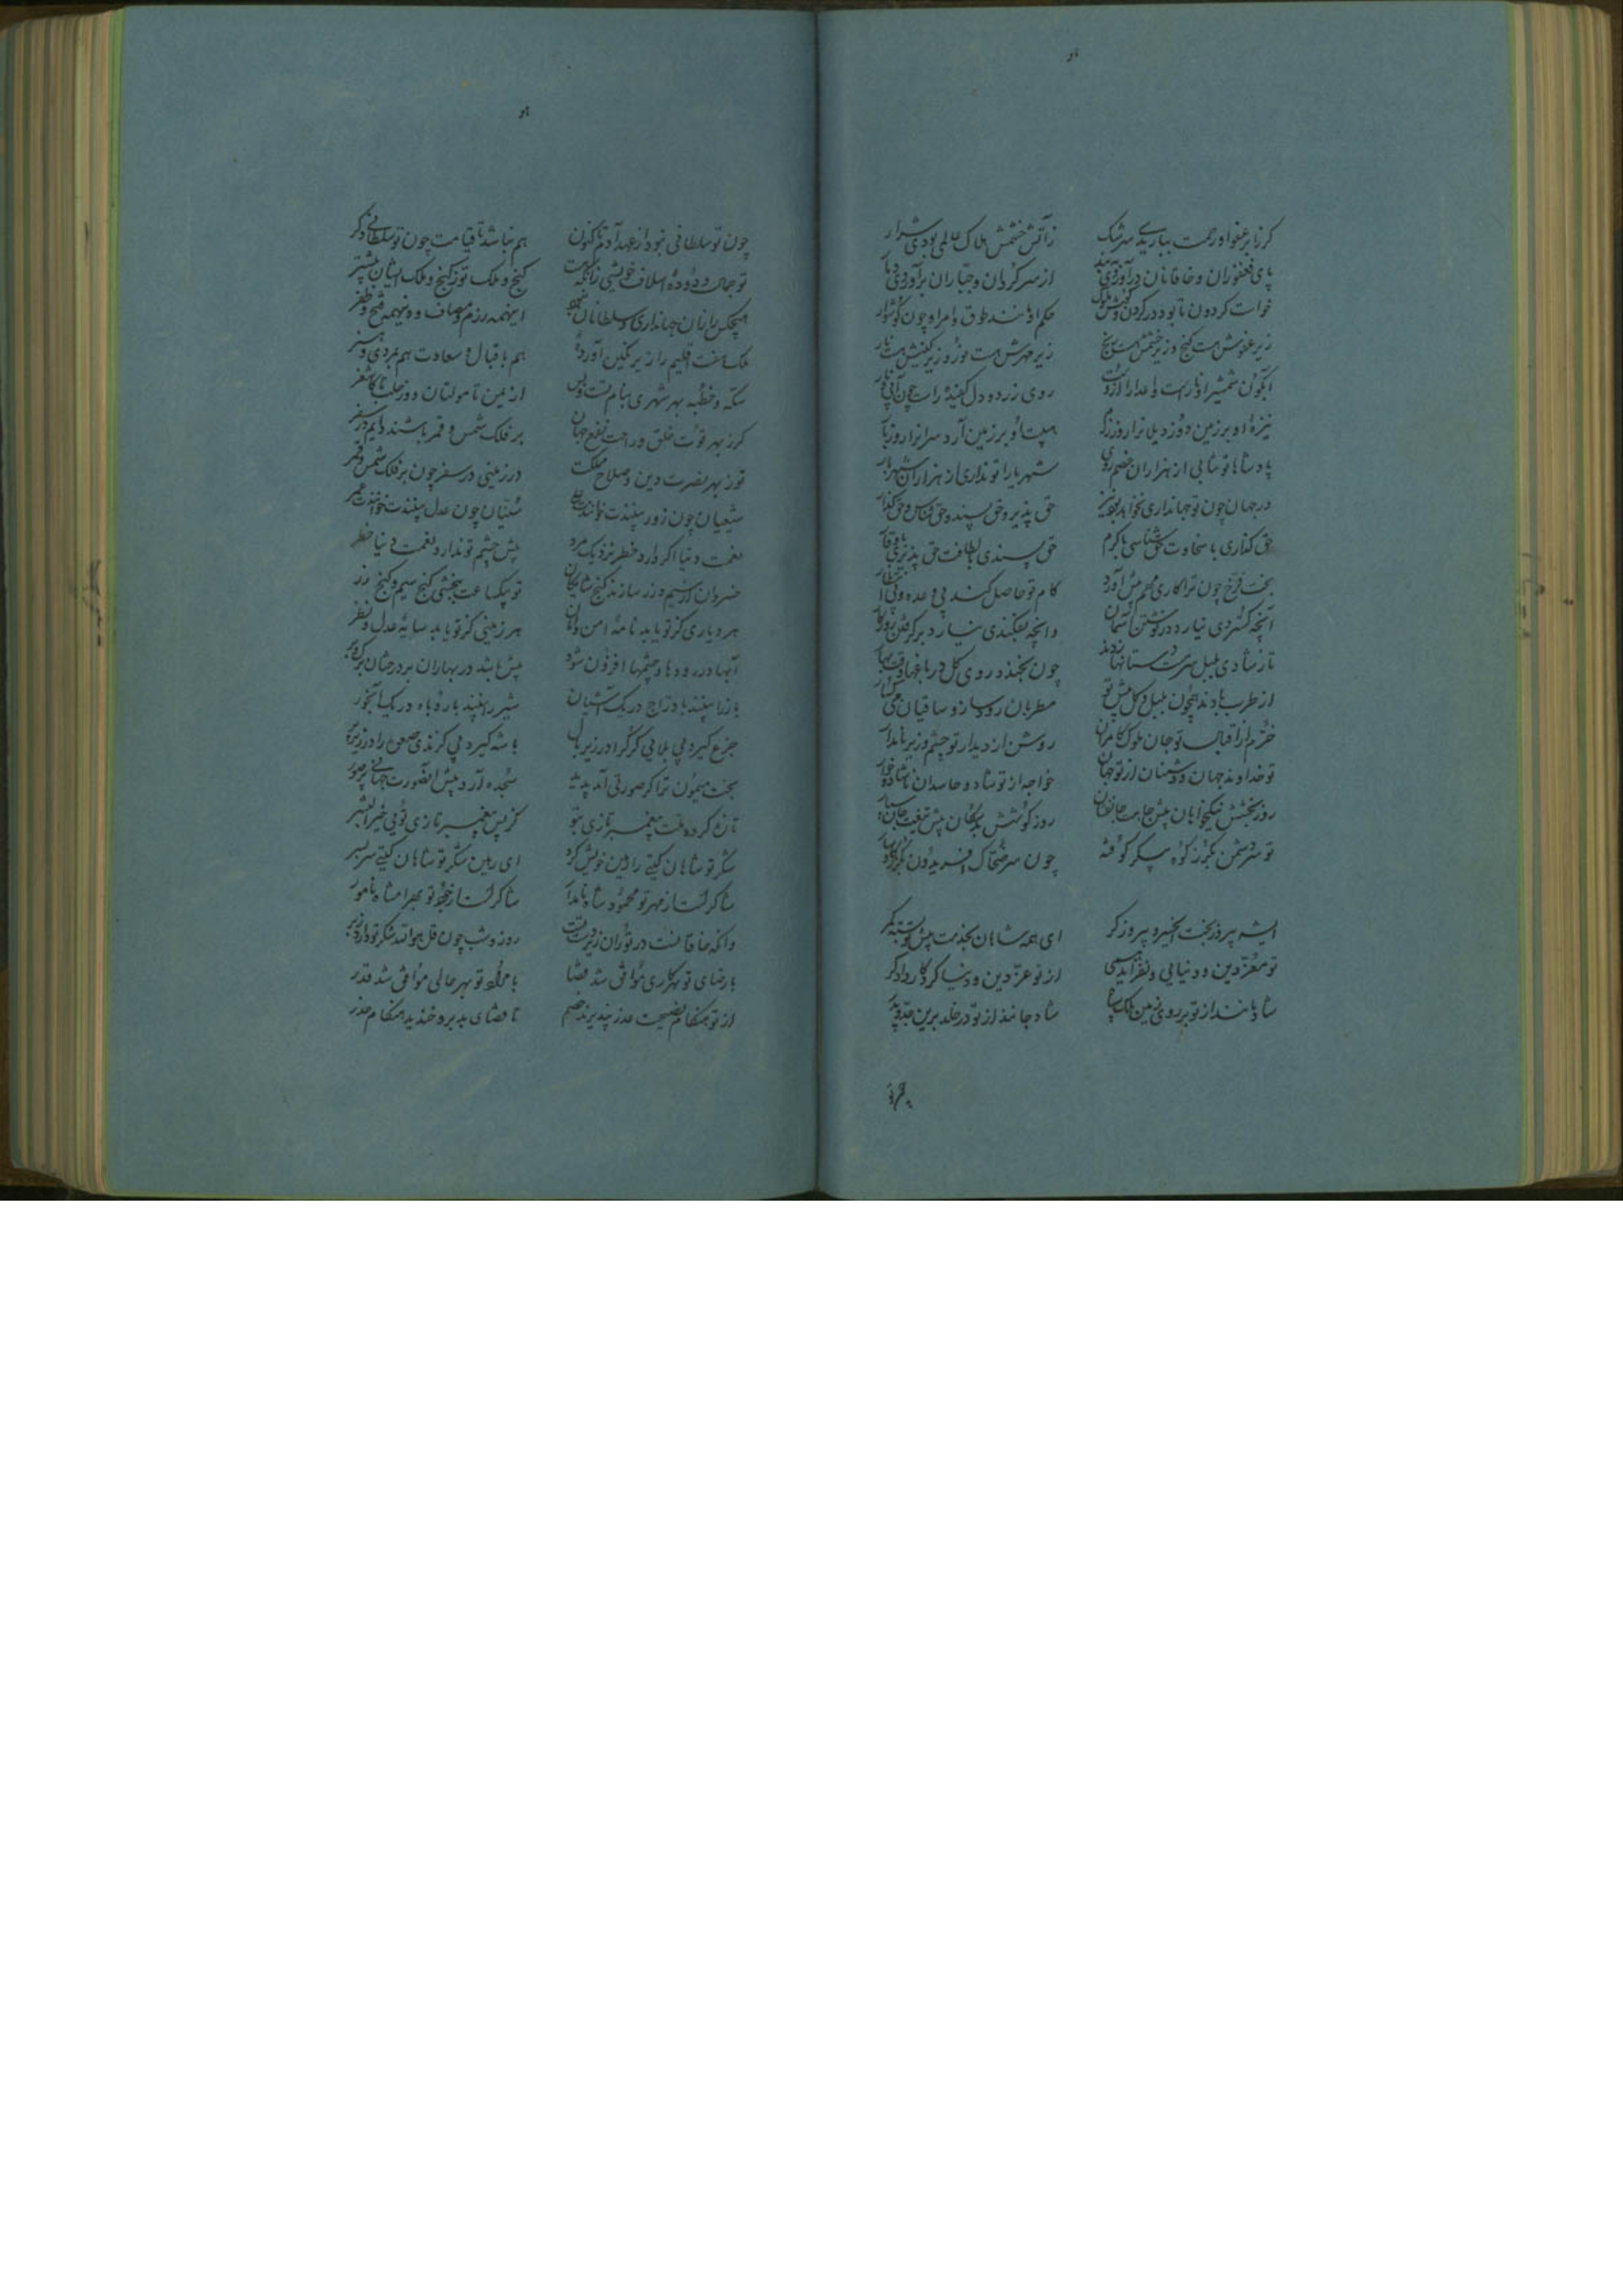 گر ز ابر عفو او رحمت نباریدی سرشک
زآتش خشمش هلاک عالمی بودی شرار
پای فغفوران و خاقانان درآوردی به بند
از سر گردان و جباران برآوردی دمار
خواست گردون تا بود در گردن و گوش ملوک
حکم او مانند طوق و امر او چون گوشوار
زیر عفوش هست گنج و زیر خشمش هست رنج
زیر مهرش هست نور و زیر کینش هست نار
آبگون شمشیر او
روی زرد و دل کفیده راست چون
نیزهٔ او بر زمین دوزد یلان را روز رزم
هیبت او بر زمین آرد سران را روز بار
پادشاها تو شهی از هزاران خصم روی
شهریارا تو نداری از هزاران شهریار
در جهان چون تو جهانداری نخواهد بود نیز
حق پذیر و حق پسند و حق شناس و حق گذار
حق گذاری با سخاوت حق شناسی با کرم
حق پسندی با لطافت حق پذیری با وقار
بخت فرخ چون ترا کاری مهم پیش آورد
کام تو حاصل کند بی وعده و بی انتظار
آنچه گستردی نیارد در نوشتن آسمان
وانچه بفکندی نیارد برگرفتن روزگار
تا ز شادی بلبل سرمست دستانها زند
چون بخندد روی گل در باغها وقت بهار
از طرب بادند همچون بلبل و گل پیش تو
مطربان رودساز و ساقیان میگسار
خرم از اقبال تو جان ملوک کامران
روشن از دیدار تو چشم وزیر نامدار
تو خداوند جهان و دشمنان از تو جهان
خواجه از تو شاد و حاسدان ناشاد و خوار
روز بخشش نیکخواهان پیش جامت جان فزان
روز کوشش بدسگالان پیش تیغت جان سپار
تو سر دشمن بگرز کوه پیکر کوفته
چون سر ضحاک افریدون بگرز گاوسار
ای شه پیروزبخت ای خسرو پیروزگر
ای همه شاهان بخدمت پیش تو بسته کمر
تو معز دین و دنیایی و نفزاید همی
از تو عز دین و دنیا کردگار دادگر
شاد باشند از تو بر روی زمین ملک و سپاه
شادمانند از تو در خلد برین جد و پدر
چون تو سلطانی نبود از عهد آدم تاکنون
هم نباشد تا قیامت چون تو سلطانی دگر
تو جمال دودهٔ اسلاف خویشی زانکه هست
گنج و ملک تو ز گنج و ملک ایشان بیشتر
هیچکس را زان جهانداران و سلطانان نبود
اینهمه رزم و مصاف و وینهمه فتح و ظفر
ملک هفت اقلیم را زیر نگین آورده‌ای
هم باقبال و سعادت هم بمردی و هنر
سکه و خطبه بهر شهری بنام تست و بس
از یمن تا مولتان و وز حلب تا کاشغر
گر ز بهر قوت خلق و راحت و نفع جهان
بر فلک شمس و قمر باشند دایم در سفر
تو ز بهر نصرت دین و صلاح مملکت
در زمینی در سفر چون بر فلک شمس و قمر
شیعیان چون زور بینندت خوانندت علی
سنیان چون عدل بینندت خوانندت عمر
نعمت دنیا اگر دارد خطر نزدیک مرد
پیش چشم تو ندارد نعمت دنیا خطر
خسروان از سیم و زر سازند گنج شایگان
تو بیکساعت ببخشی گنج سیم و گنج زر
هر دیاری کز تو یابد نامهٔ امن و امان
هر زمینی کز تو یابد سایهٔ عدل و نظر
آبها در رودها و چشمها افزون شود
بیش باشد در بهاران بر درختان برگ و بر
باز را بینند با دراج در یک آشیان
شیر را بینند با روباه در یک آبخور
چرغ گیرد بی بلایی کرکرا در زیر بال
باشه گیرد بی گزندی صعوه را در زیر پر
بخت میمون ترا گر صورتی آمد پدید
سجده آرد پیش آن صورت جهانی پر صور
تازه کرده ملت پیغمبر تازی بتو
کز پس پیغمبر تازی تویی خیر البشر
شکر تو شاهان گیتی را رهین خویش کرد
ای رهین شکر تو شاهان گیتی سر بسر
شاکرست از مهر تو محمود شاه نامدار
شاکرست از جود تو بهرامشاه نامور
وانکه خاقانست در توران زمین زیر دست
روز و شب چون قل هو الله شکر تو دارد ز بر
با رضای تو بهر کاری موافق شد قضا
با مراد تو بهر حالی موافق شد قدر
از تو هنگام نصیحت عذر نپذیرند خصم
تا قضای بد بدو خندید هنگام حذر